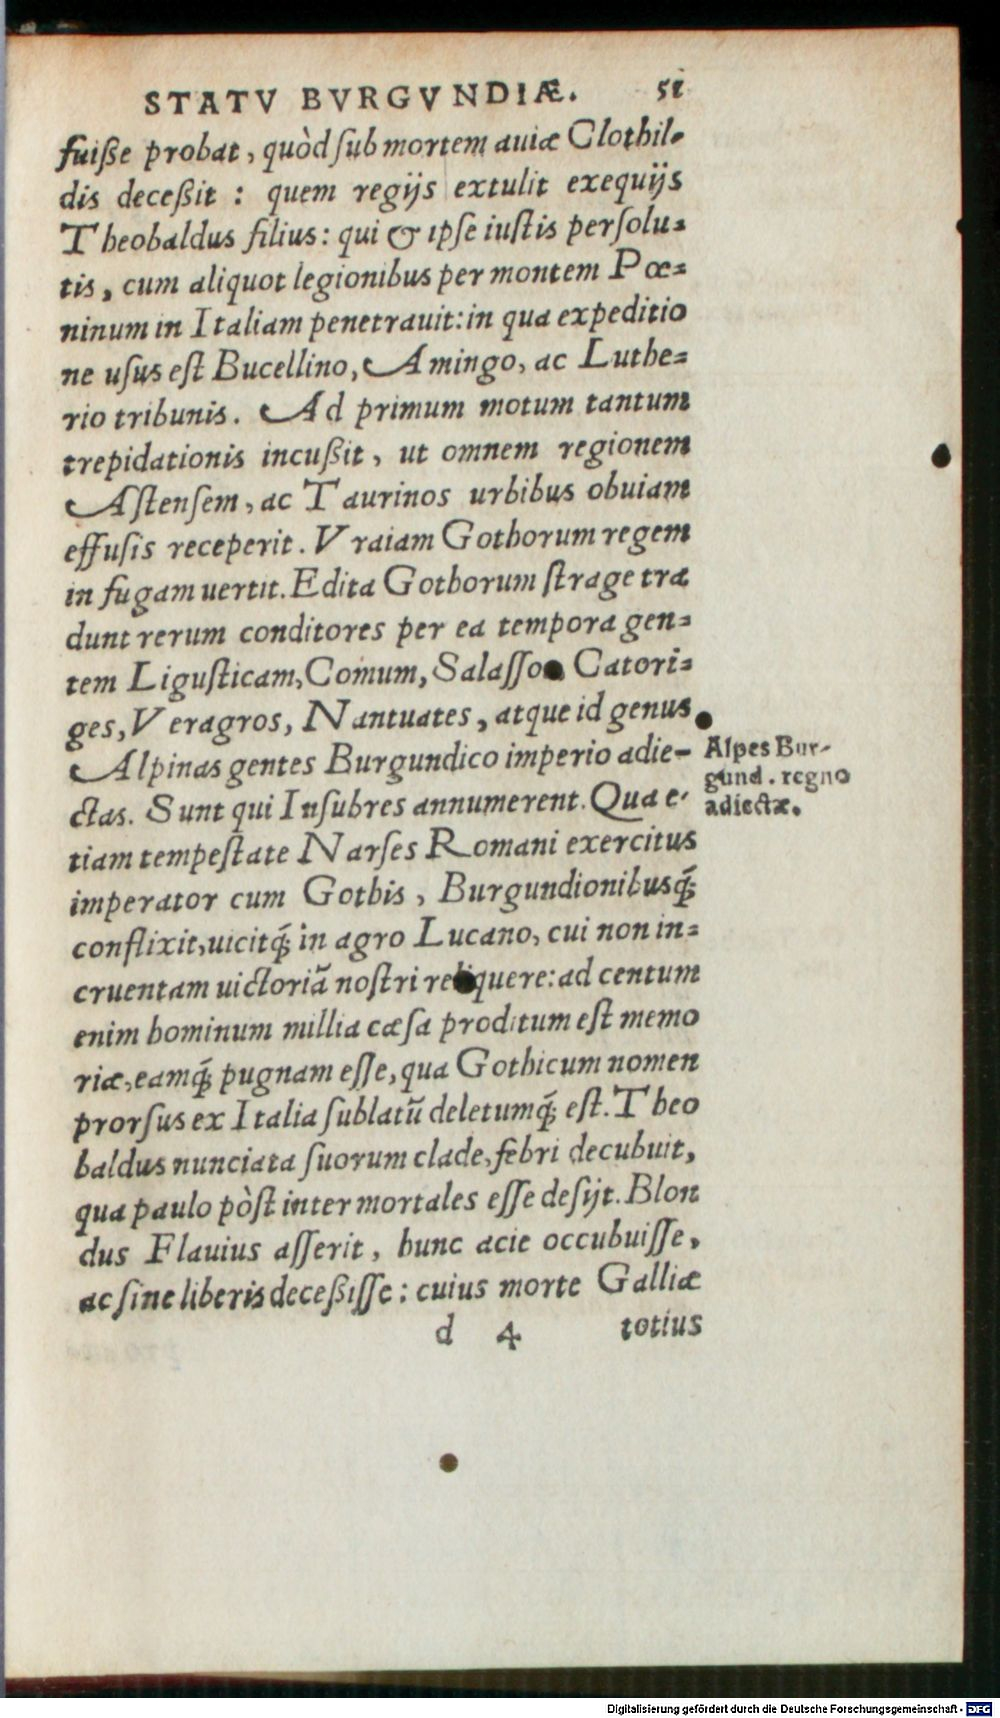 STATV BVRGVNDIÆ. 51
fuiße probat, quòd sub mortem auiæ Clothil-
dis deceßit : quem regijs extulit exequijs
Theobaldus filius: qui & ipse iustis persolu-
tis, cum aliquot legionibus per montem Pœ-
ninum in Italiam penetrauit: in qua expeditio
ne usus est Bucellino, Amingo, ac Luthe-
rio tribunis. Ad primum motum tantum
trepidationis incußit, ut omnem regionem
Astensem, ac Taurinos urbibus obuiam
effusis receperit. Vraiam Gothorum regem
in fugam uertit. Edita Gothorum strage tra
dunt rerum conditores per ea tempora gen-
tem Ligusticam, Comum, Salasso Catori-
ges, Veragros, Nantuates, atque id genus
Alpinas gentes Burgundico imperio adie-
ctas. Sunt qui Insubres annumerent. Qua e-
tiam tempestate Narses Romani exercitus
imperator cum Gothis, Burgundionibusq́;
conflixit, uicitq́; in agro Lucano, cui non in-
cruentam uictoriã nostri reliquere: ad centum
enim hominum millia cæsa proditum est memo
riæ, eamq́; pugnam esse, qua Gothicum nomen
prorsus ex Italia sublatũ deletumq́; est. Theo
baldus nunciata suorum clade, febri decubuit,
qua paulo pòst inter mortales esse desijt. Blon
dus Flauius asserit, hunc acie occubuisse,
ac sine liberis deceßisse : cuius morte Galliæ
d 4 totius
Alpes Bur-
gund. regno
adiectæ.
Digitalisierung gefördert durch die Deutsche Forschungsgemeinschaft - DFG